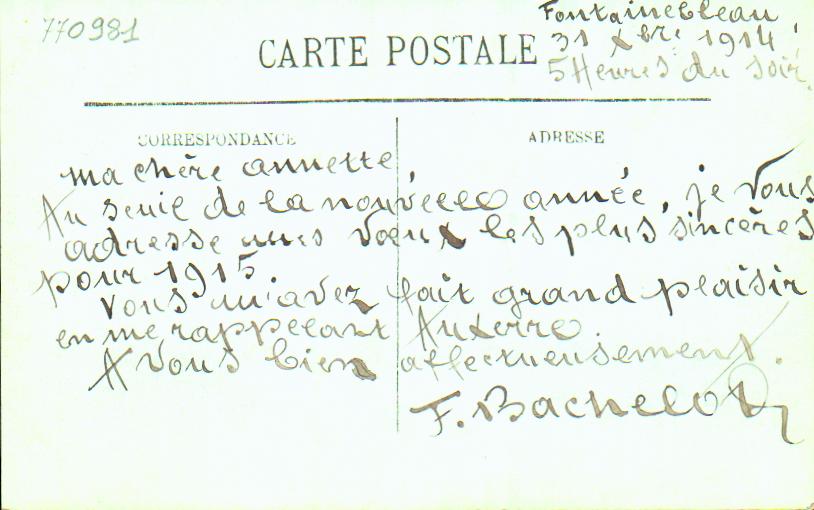 770981
Fontainebleau
31 Xbre 1914
5 Heures du soir.
CARTE POSTALE
CORRESPONDANCE
ADRESSE
ma chère annette,
Au seuil de la nouvelle année, je vous
adresse mes vœux les plus sincères
pour 1915.
Vous m'avez fait grand plaisir
en me rappelant Auxerre.
A vous bien affectueusement.
F. Bachelot